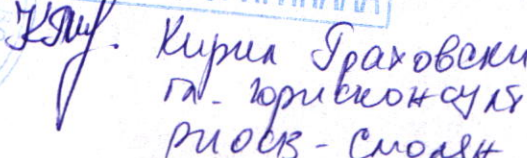 Кирил Граховски
гл. юрисконсулт
РИОСВ - Смолян